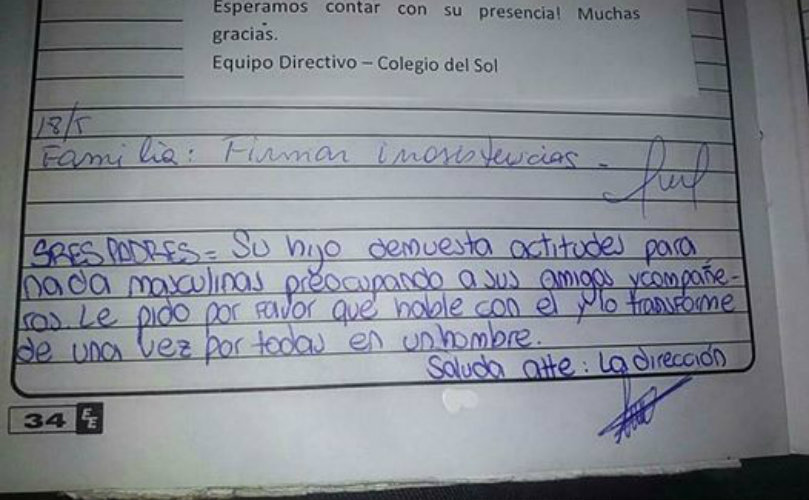 Esperamos contar con su presencia! Muchas
gracias.
Equipo Directivo – Colegio del Sol
18/5
Familia: Firmar inasistencias -
SRES PADRES = Su hijo demuesta actitudes para
nada masculinas preocupando a sus amigos y compañe-
ros. Le pido por favor que hable con el y lo transforme
de una vez por todas en un hombre.
Saluda atte: La dirección
34 EE